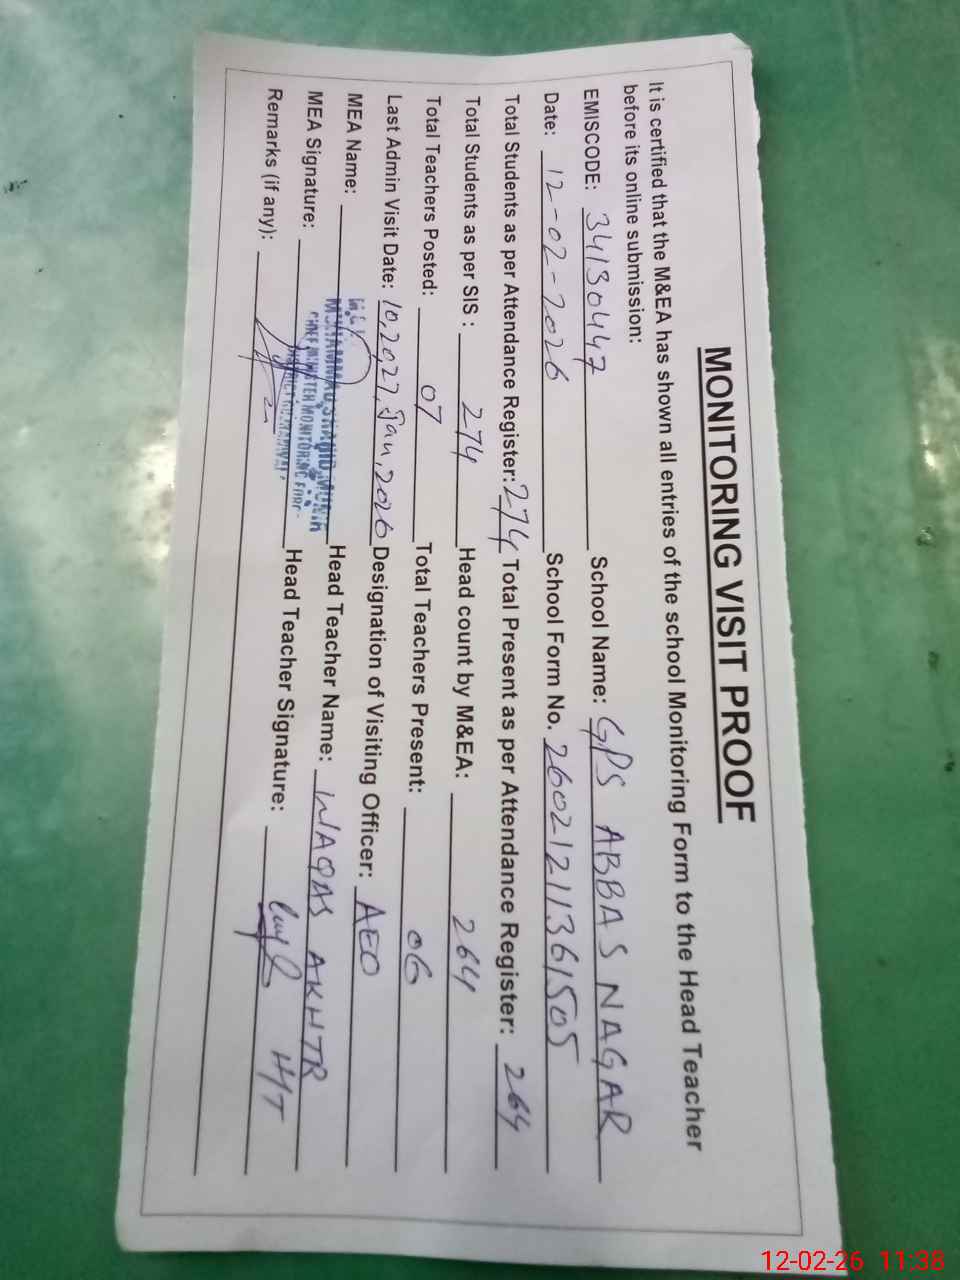 MONITORING VISIT PROOF
It is certified that the M&EA has shown all entries of the school Monitoring Form to the Head Teacher
before its online submission:
EMISCODE: 34130447 School Name: GPS ABBAS NAGAR
Date: 12-02-2026 School Form No. 26021211361505
Total Students as per Attendance Register: 274 Total Present as per Attendance Register: 264
Total Students as per SIS : 274 Head count by M&EA: 264
Total Teachers Posted: 07 Total Teachers Present: 06
Last Admin Visit Date: 10,20,27, Jan, 2026 Designation of Visiting Officer: AEO
MEA Name: MUHAMMAD SHAHID MUNIR Head Teacher Name: WAQAS AKHTR
CHIEF MINISTER MONITORING FORC
MEA Signature: DISTRICT Head Teacher Signature: H/T
Remarks (if any):
12-02-26 11:38